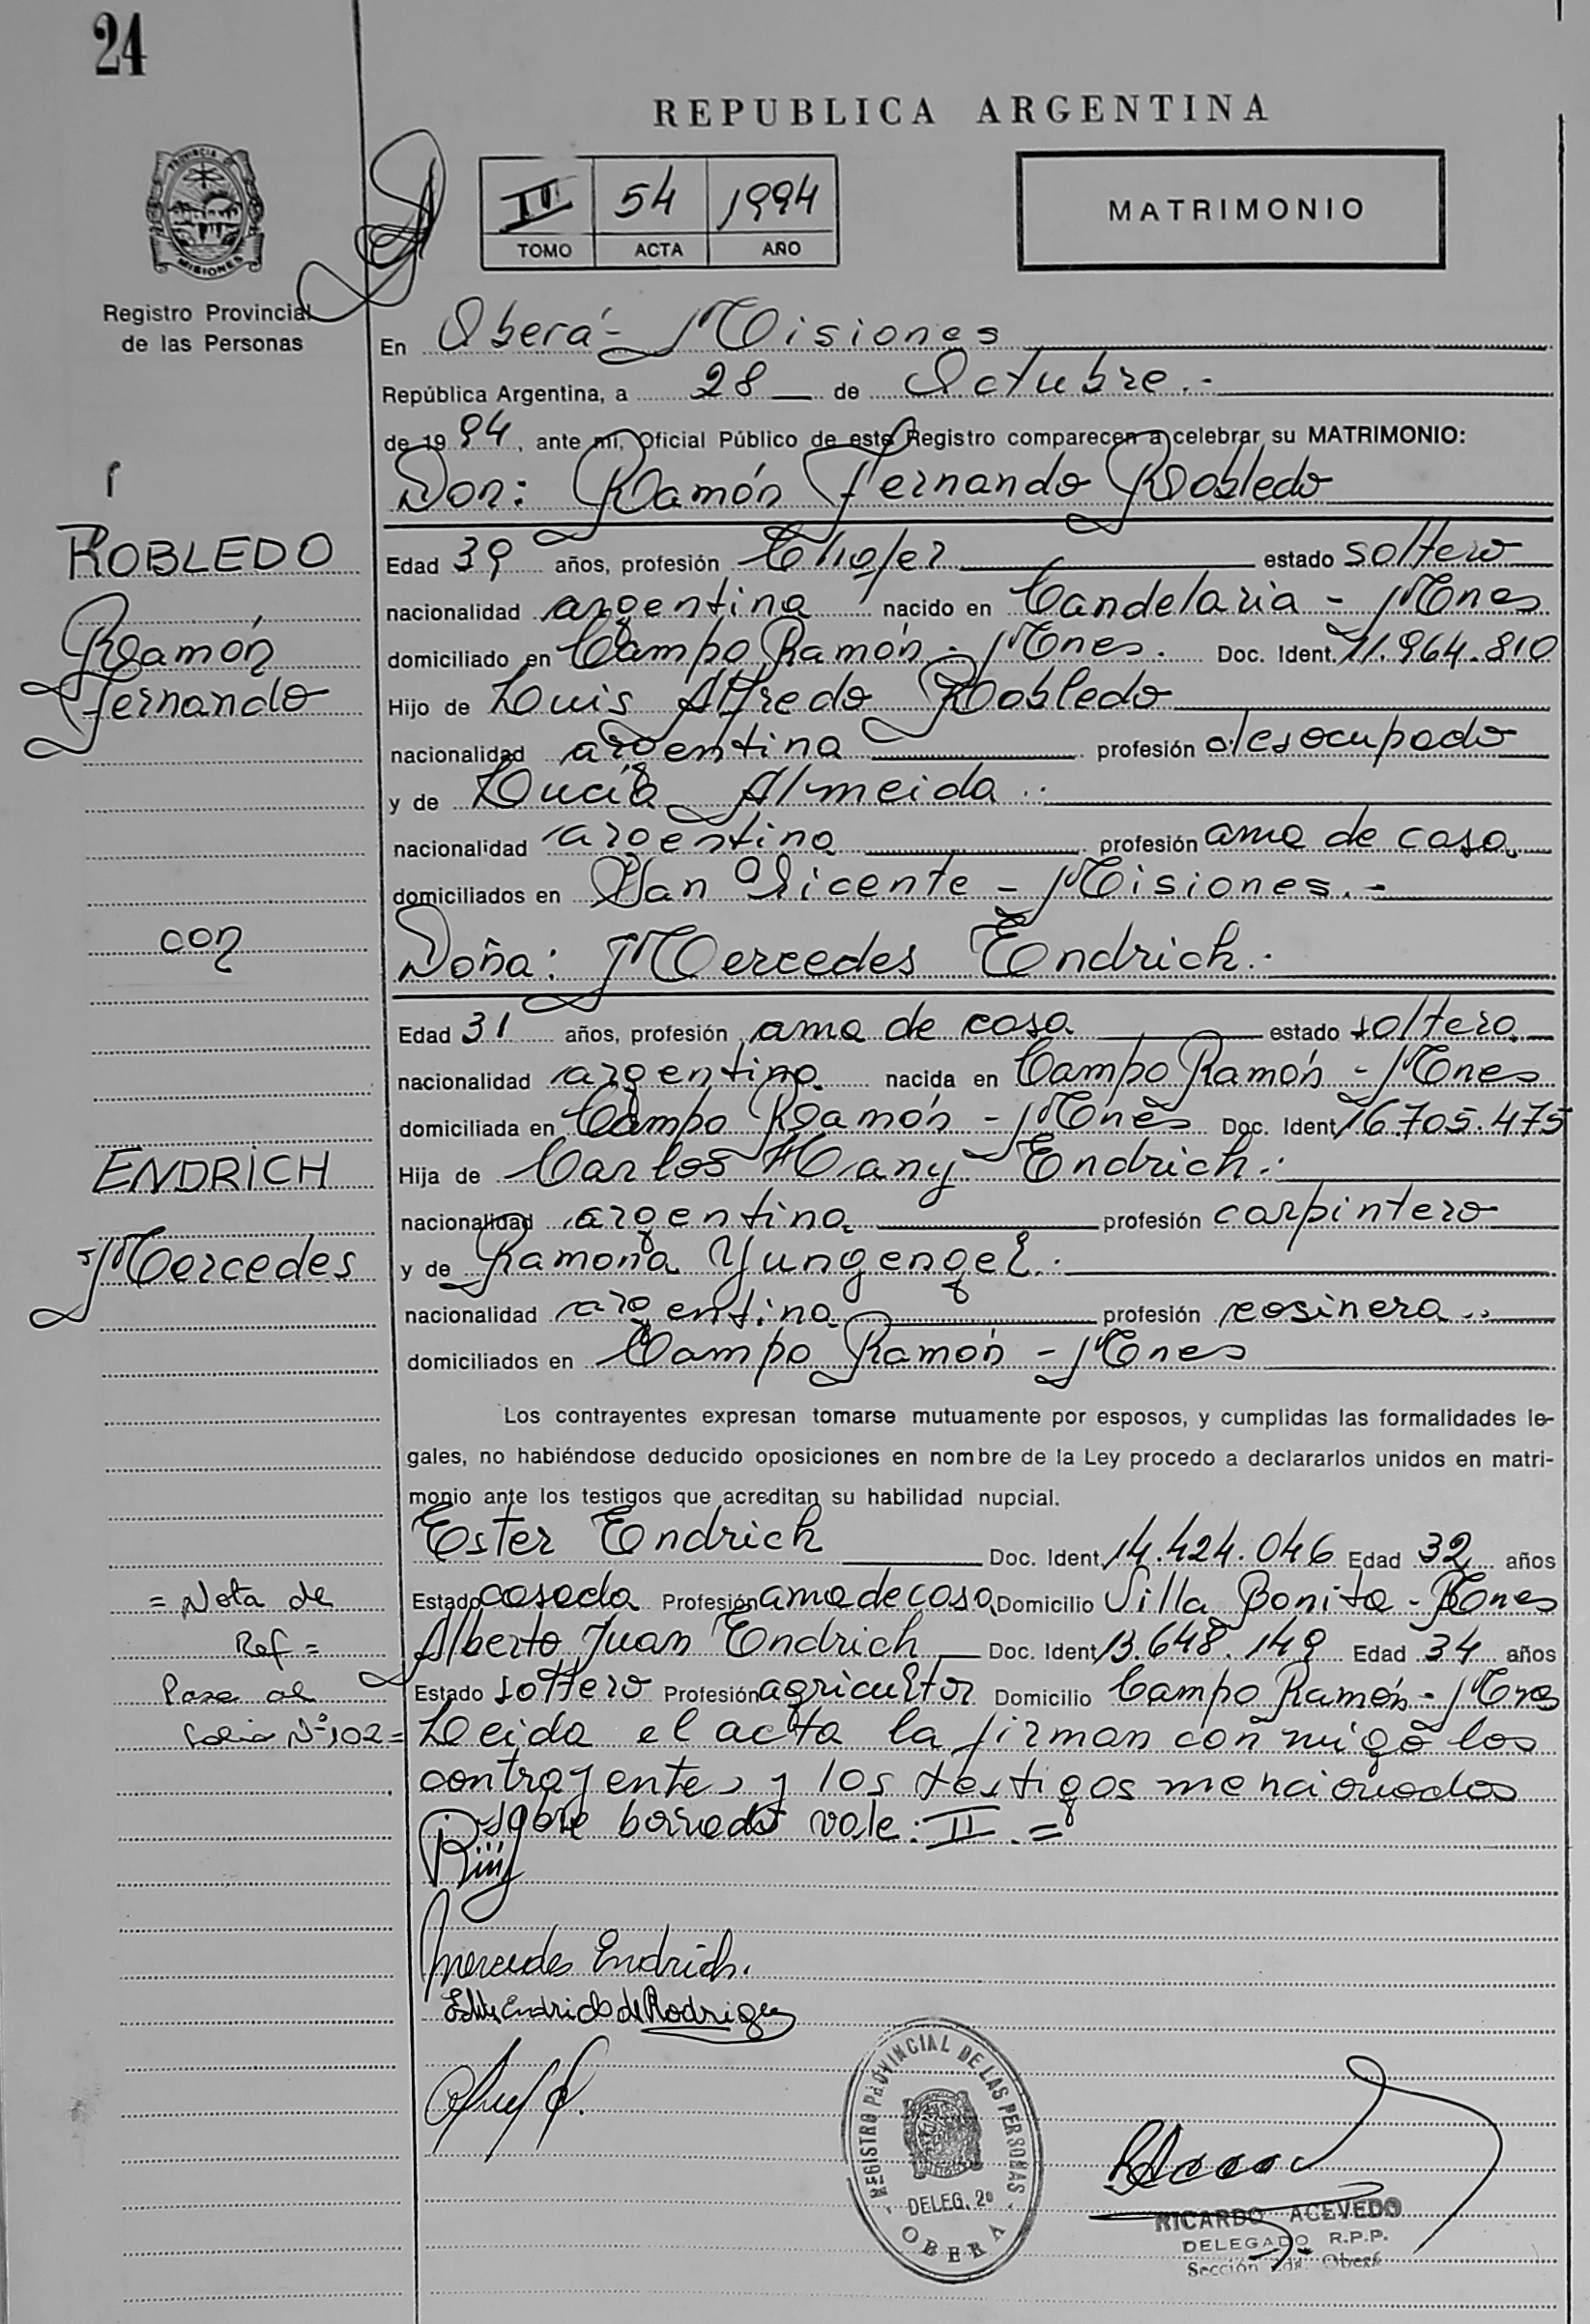 24
REPUBLICA ARGENTINA
PROVINCIA DE
MISIONES
Registro Provincial
de las Personas
II 54 1994
TOMO ACTA AÑO
MATRIMONIO
En Oberá - Misiones
República Argentina, a 28 de Octubre.-
de 1994, ante mí, Oficial Público de este Registro comparecen a celebrar su MATRIMONIO:
Don: Ramón Fernando Robledo
ROBLEDO
Ramón
Fernando
Edad 39 años, profesión Chofer estado soltero
nacionalidad argentina nacido en Candelaria - Mnes
domiciliado en Campo Ramón - Mnes. Doc. Ident. 11.964.810
Hijo de Luis Alfredo Robledo
nacionalidad argentina profesión desocupado
y de Lucía Almeida.-
nacionalidad argentina profesión ama de casa
domiciliados en San Vicente - Misiones.-
con
Doña: Mercedes Endrich.-
Edad 31 años, profesión ama de casa estado soltera
nacionalidad argentina nacida en Campo Ramón - Mnes
domiciliada en Campo Ramón - Mnes Doc. Ident. 16.705.475
ENDRICH
Mercedes
Hija de Carlos Hany Endrich.-
nacionalidad argentina profesión carpintero
y de Ramona Yungengel.-
nacionalidad argentina profesión cosinera.-
domiciliados en Campo Ramón - Mnes
Los contrayentes expresan tomarse mutuamente por esposos, y cumplidas las formalidades le-
gales, no habiéndose deducido oposiciones en nombre de la Ley procedo a declararlos unidos en matri-
monio ante los testigos que acreditan su habilidad nupcial.
Ester Endrich Doc. Ident. 14.424.046 Edad 32 años
Estado casada Profesión ama de casa Domicilio Villa Bonita - Mnes
Alberto Juan Endrich Doc. Ident. 13.648.149 Edad 34 años
Estado soltero Profesión agricultor Domicilio Campo Ramón - Mnes
= Nota de
Ref =
Pasa al
folio Nº 102 =
Leida el acta la firman con migo los
contrayentes y los testigos mencionados
sobre borrado vale: II. =
Mercedes Endrich.
Endrich de Rodriguez
REGISTRO PROVINCIAL DE LAS PERSONAS
DELEG. 2º
OBERA
RICARDO ACEVEDO
DELEGADO R.P.P.
Sección 2da. Oberá